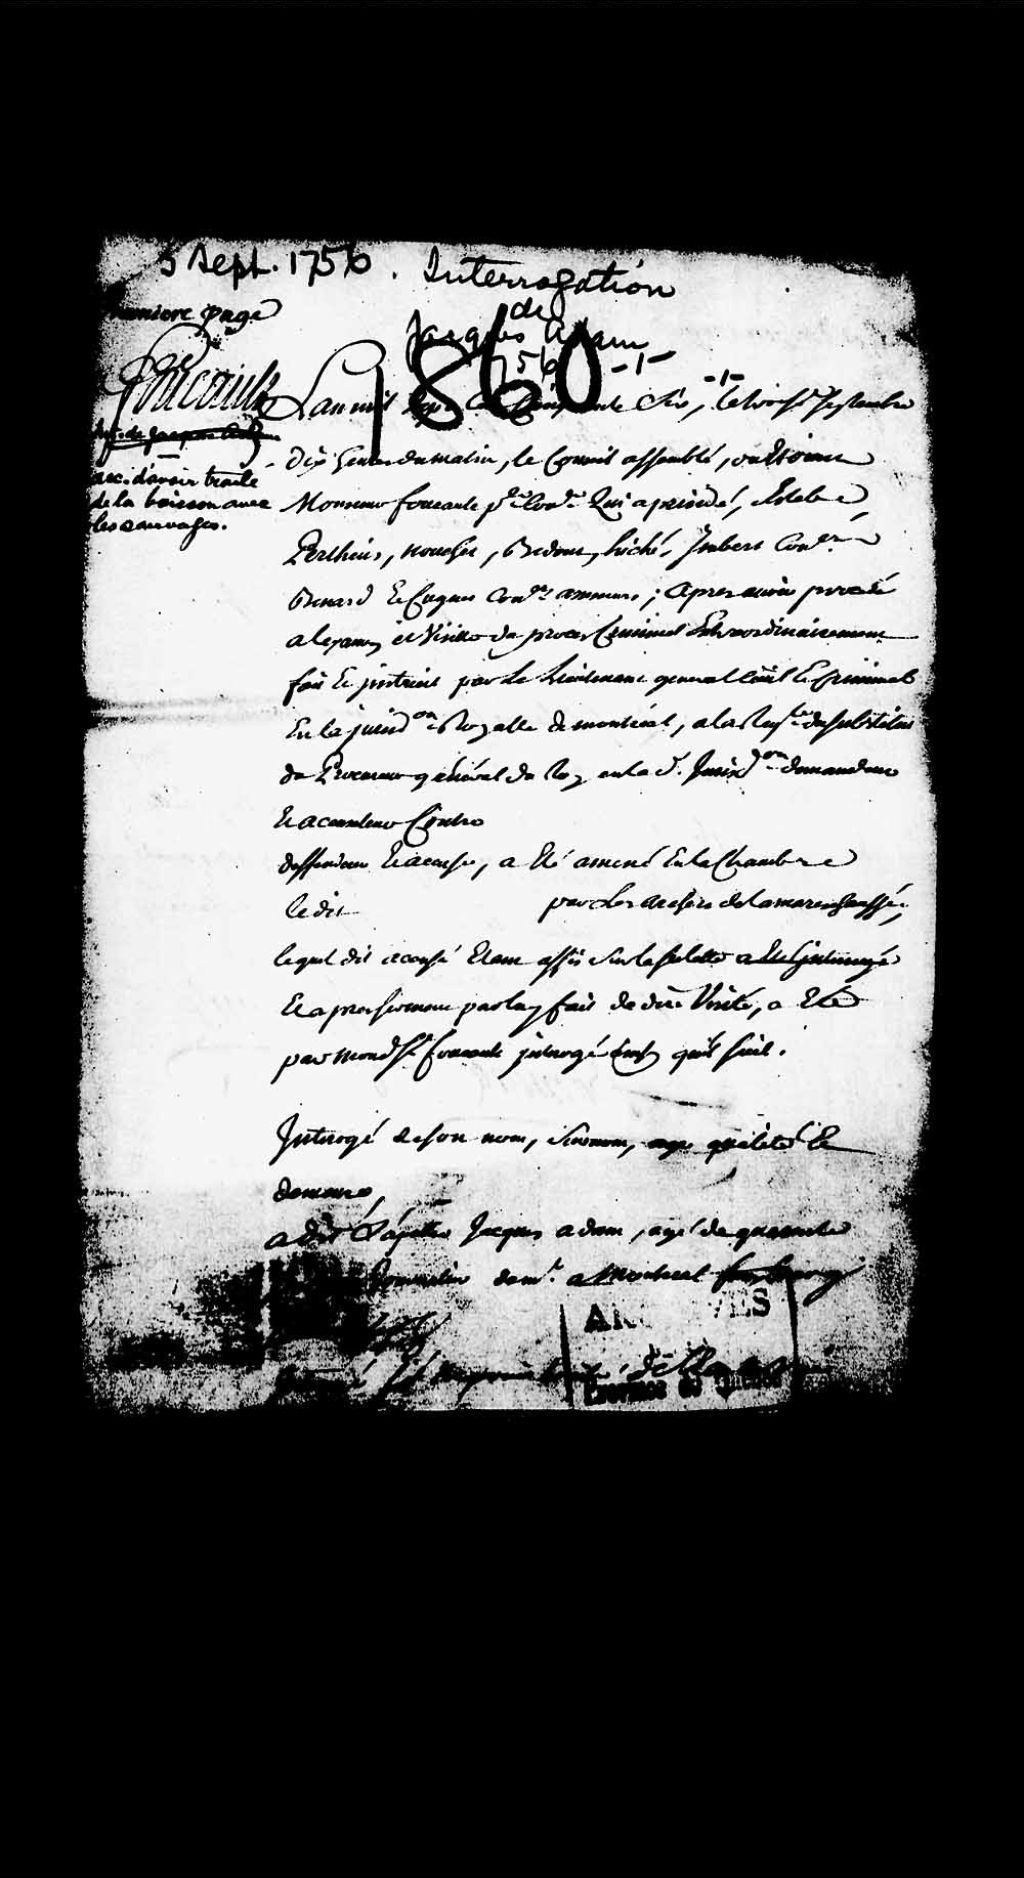 5 Sept. 1756. Interrogation
de
Jacques Adam
1756 -1-
860
premiere page
Foucault
Int. de Jacques Adam
acc. d'avoir traité
de la boisson avec
les sauvages.
L'an mil Sept Cent Cinquante Six, le trois.e Septembre
dix heures du matin, le Conseil assemblé, ou Etoient
Monsieur foucault p.er Con.er Qui a presidé, Estebe
Perthuis, Nouchet, Bedout, hiché, Imbert Con.ers
Benard Et Cugnet Con.ers assesseurs; apres avoir procedé
a l'examen et Visitte du procez Criminel Extraordinairement
fait Et instruit par Le Lieutenant general Civil Et Criminel
En la jurisd.on Royalle de montréal, a la Req.te du substitut
du Procureur général du Roy en la d. Jurisd.on demandeur
Et accusateur Contre
deffendeur Et accusé, a Eté amené En la Chambre
le dit par Les archers de la marechaussée,
lequel dit accusé Etant assis Sur la selette
Et apres serment par luy fait de dire Verité, a Eté
par mond. S.r foucault interogé ainsy qu'il suit.
Interogé de son nom, surnom, age qualité Et
demeure,
a dit S'apeller Jacques adam, agé de quarante
dem.t a Montreal
ARCHIVES
Province de Québec